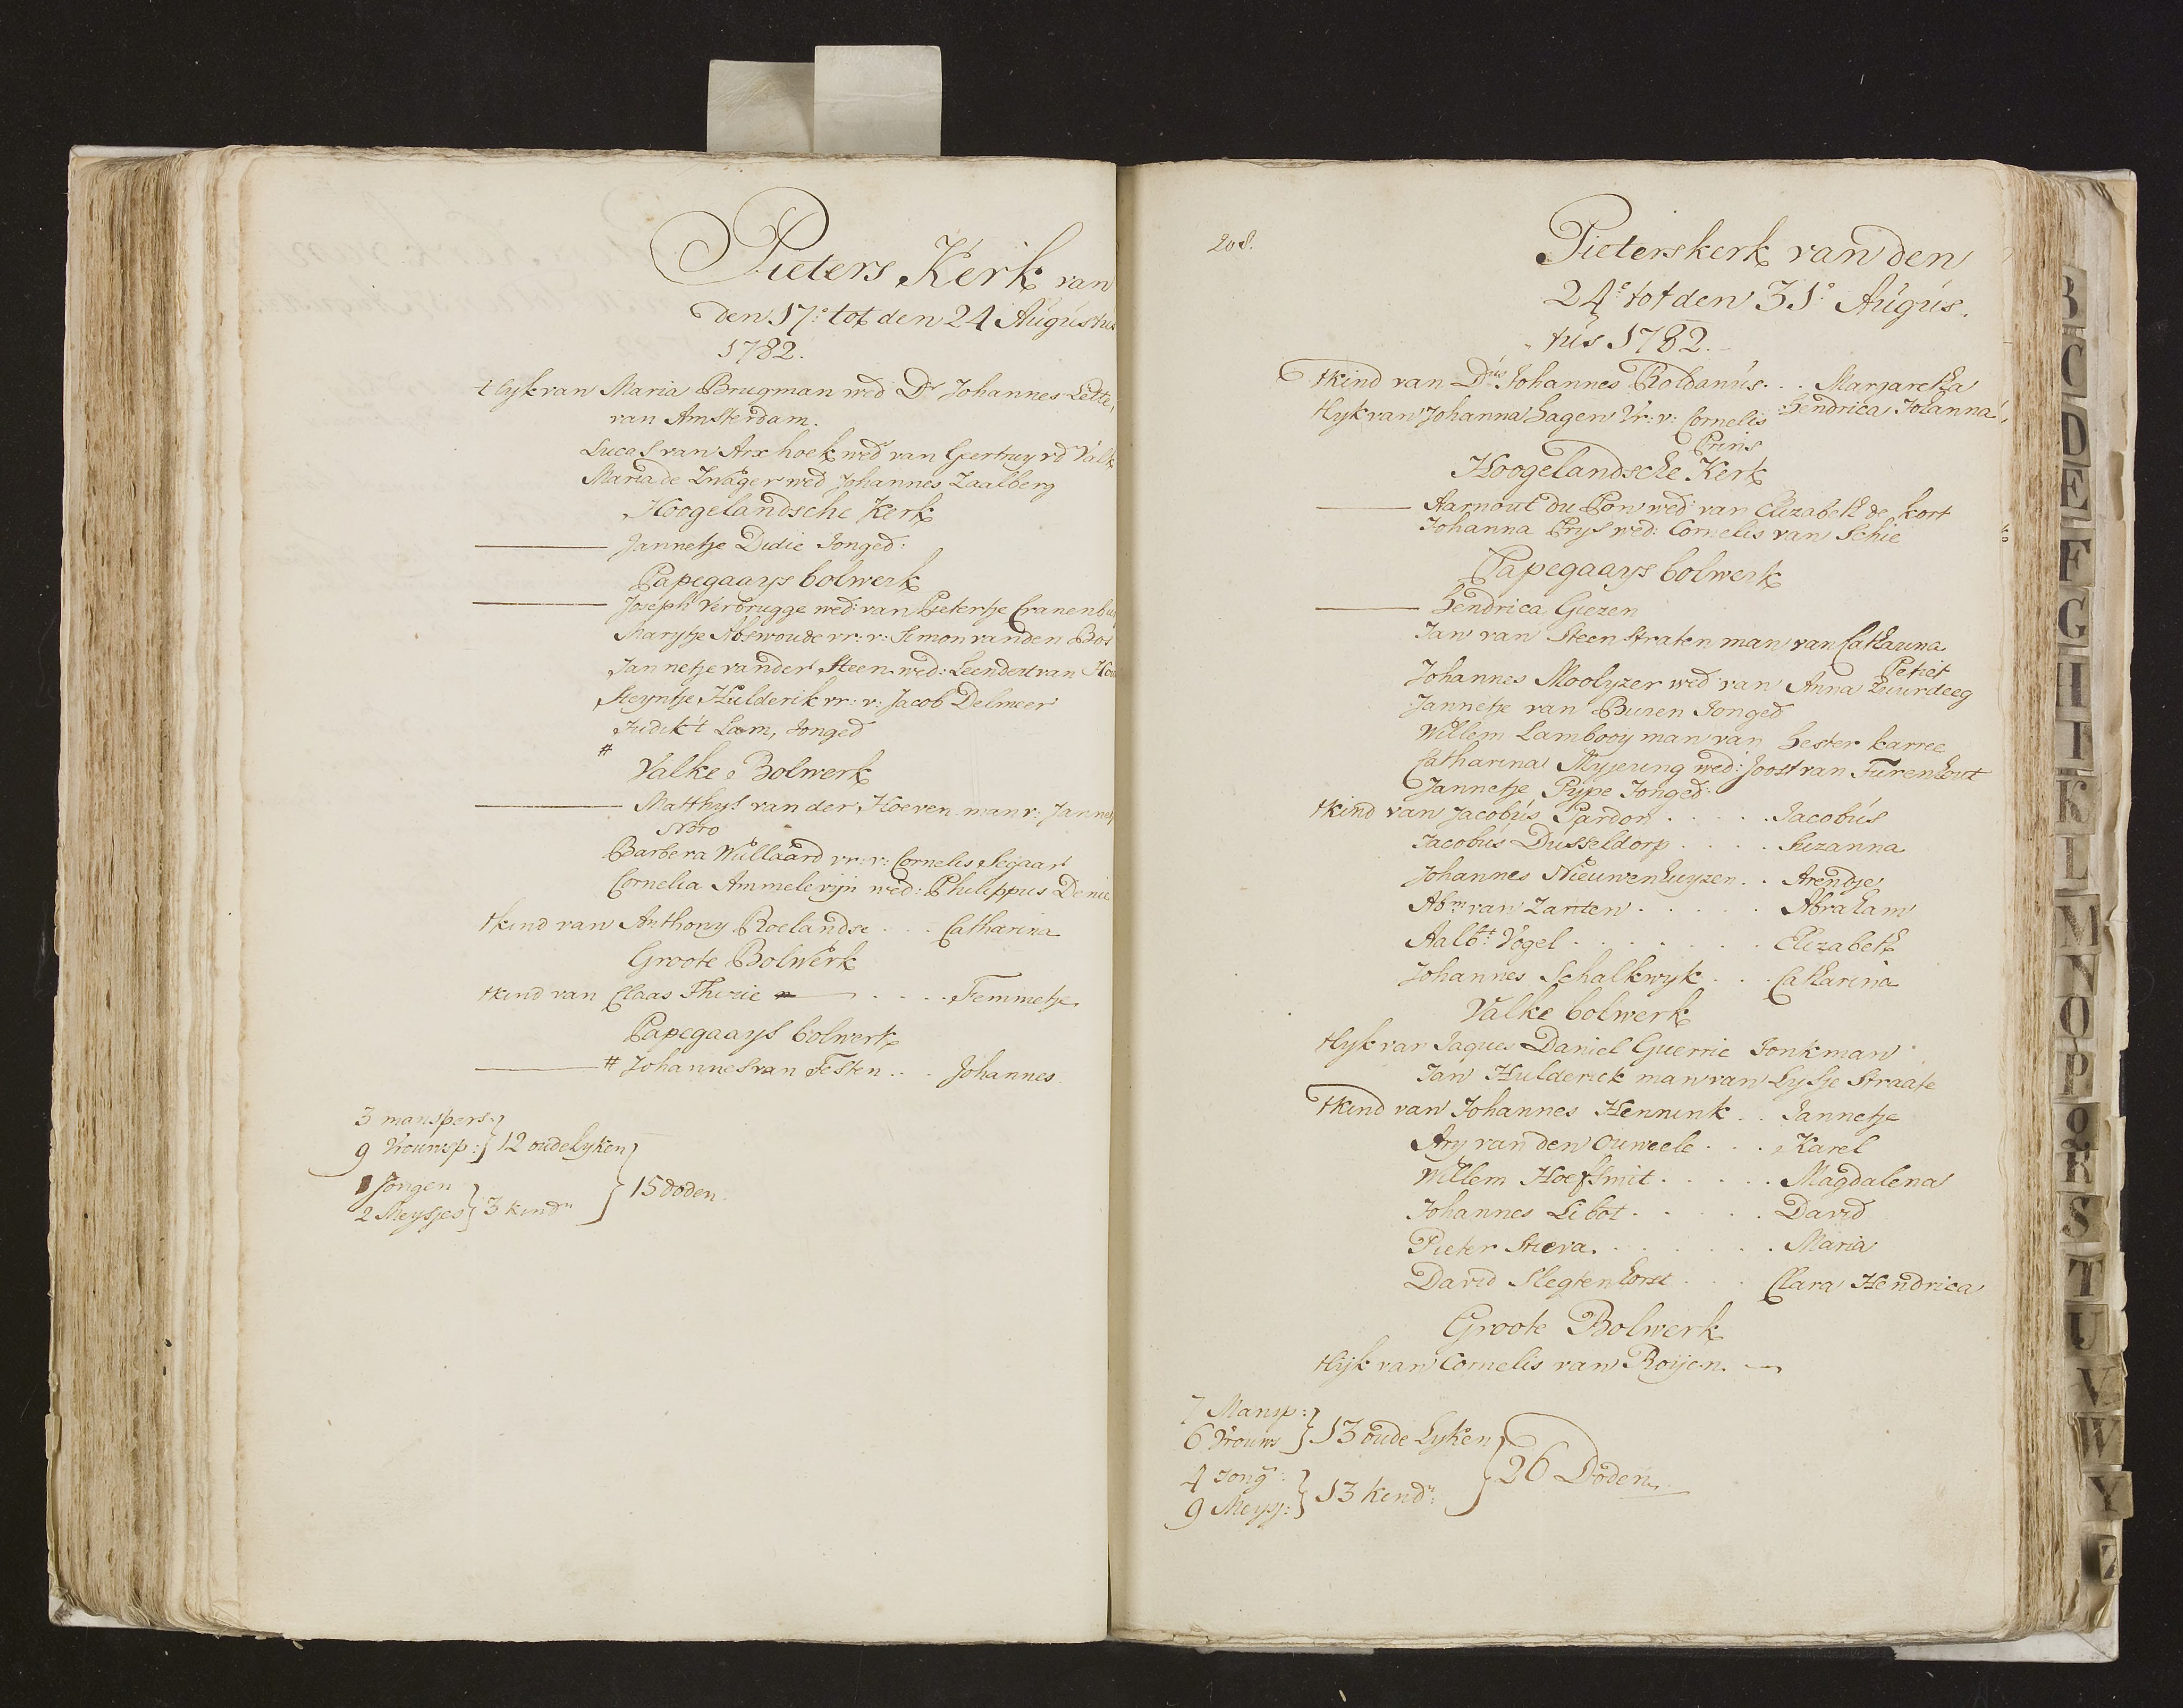 Pieters Kerk van
den 17:e tot den 24 Augustus
1782.
t Lyk van Maria Brugman wed Dr Johannes Lette,
van Amsterdam.
Lucas van Arxhoek wed van Geertruyd Valk
Maria de Zwager wed Johannes Zaalberg
Hoogelandsche Kerk
Jannetje Didie Jonged:
Papegaays bolwerk
Joseph Verbrugge wed: van Pietertje Cranenbu
Marytje Abswoude vr: v: Simon vanden Bos
Jannetje vander Steen wed: Leendert van Hou
Steyntje Hulderik vr: v: Jacob Delmeer
Judik 't Lam, Jonged
#
Valke Bolwerk
Matthys van der Hoeven man v: Jannet
Noro
Barbera Willaard vr: v: Cornelis Segaar
Cornelia Ammelerijn wed: Philippus Denie
tkind van Anthony Roelandse . . . Catharina
Groote Bolwerk
tkind van Claas Thirie . . . . Femmetje
Papegaays bolwerk
# Johannes van Festen . . . Johannes
3 manspers:
9 Vrouwsp: } 12 oude Lyken
1 Jongen
2 Meysjes } 3 kindn } 15 doden
208.
Pieterskerk van den
24e tot den 31e Augus.
tus 1782.
tkind van Dus Johannes Roldanus . . . Margaretha
Hendrica Johanna
tLyk van Johanna Hagen Vr: v: Cornelis
Prins
Hoogelandsche Kerk
Aarnout du Pon wed: van Elizabeth de kort
Johanna Prys wed: Cornelis van Schie
Papegaays bolwerk
Hendrica Giezen
Jan van Steenstraten man van Catharina
Petiet
Johannes Moolyzer wed van Anna Zuurdeeg
Jannetje van Buren Jonged
Willem Lambooy man van Hester karree
Catharina Myjering wed: Joost van Turenhout
Jannetje Pype Jonged:
tkind van Jacobus Pardon . . . . . Jacobus
Jacobus Dusseldorp . . . . Suzanna
Johannes Nieuwenhuyzen . . Arendje
Abm van Zanten . . . . . Abraham
Aalbt: Vogel . . . . . . . Elizabeth
Johannes Schalkwyk . . . Catharina
Valke bolwerk
tLyk van Jaques Daniel Guerrie Jonkman
Jan Hulderick man van Lysje Straate
tkind van Johannes Hennink . . Jannetje
Ary van den Ouweele . . . Karel
Willem Hoefsmit . . . . . Magdalena
Johannes Libot . . . . . David
Pieter Stiera . . . . . . . Maria
David Slegtenhorst . . . Clara Hendrica
Groote Bolwerk
tLijk van Cornelis van Roijen.
7 Mansp:
6 Vrouws } 13 oude Lyken
4 Jong:
9 Meysj: } 13 kindn: } 26 Doden
B
C
D
E
F
G
H
I
K
L
M
N
O
P
Q
R
S
T
U
V
W
Y
Z